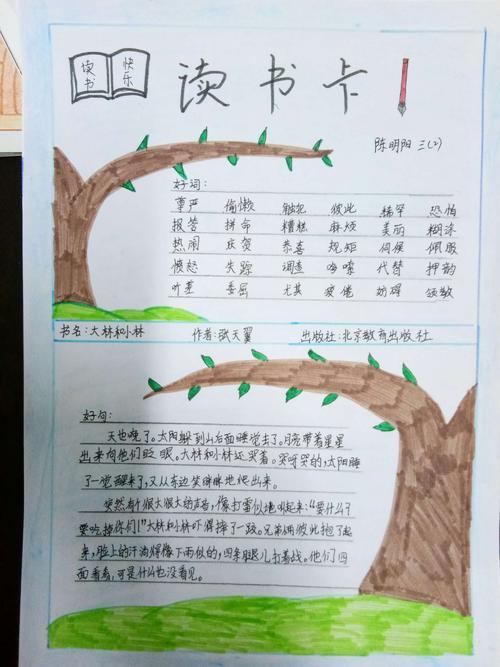 读书 快乐
读书卡
陈明阳 三(2)
好词:
尊严 偷懒 触犯 彼此 稀罕 恐怕
报答 拼命 糟糕 麻烦 美丽 糊涂
热闹 庆贺 恭喜 规矩 伺候 佩服
愤怒 失踪 调查 代替 押韵
叶茎 委屈 尤其 疲倦 妨碍 领教
书名:大林和小林 作者:张天翼 出版社:北京教育出版社
好句:
天也晚了。太阳躲到山后面睡觉去了。月亮带着星星
出来向他们眨眼。大林和小林还哭着。哭呀哭的,太阳睡
了一觉醒来了,又从东边笑眯眯地爬出来。
突然有个很大很大的声音,像打雷似地吼起来:“要什么?
要吃掉你们!”大林和小林吓得摔了一跤。兄弟俩彼此抱了起
来,脸上的汗油焊像下雨似的,四条腿儿打着战。他们四
面看看,可是什么也没看见。